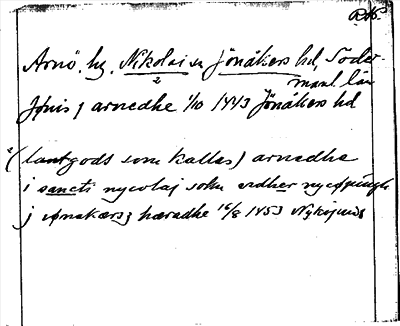 RK.
Arnö, hg, Nikolai sn Jönåkers hd, Söder-
2 manl. län
Jønis j arnedhe 1/10 1443 Jönåkers hd
2 (lantgods som kallas) arnedhe
i sancti nycolaj sokn vidher nycøpungh
j ønakærs hæradhe 16/8 1453